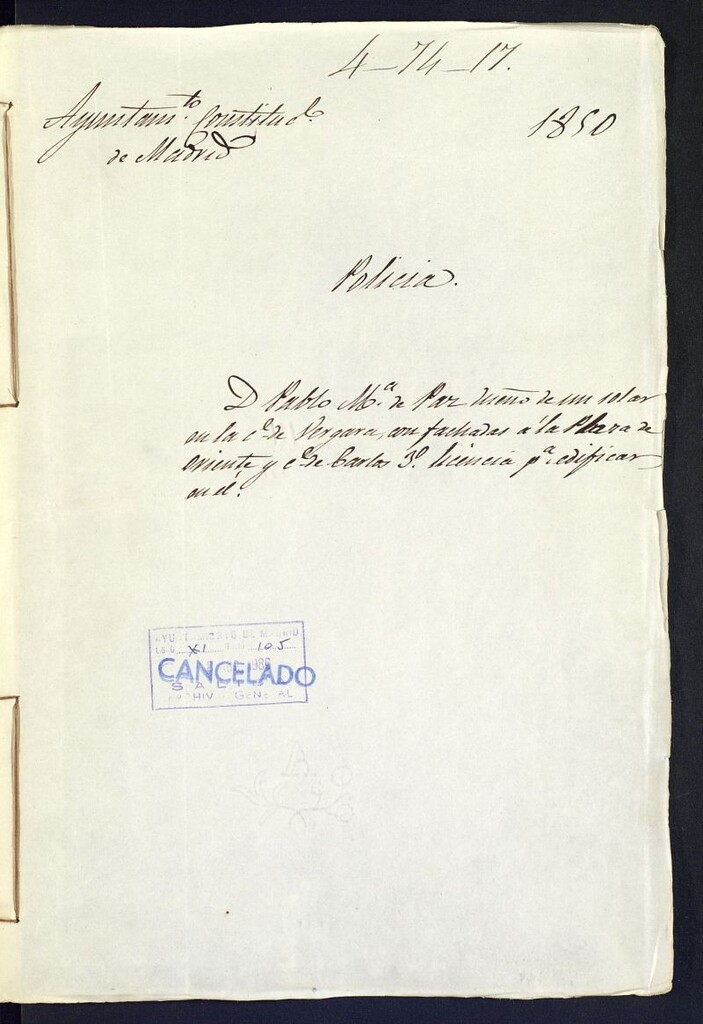 4-74-17.
Ayuntam.to Constitucl.
de Madrid
1850
Policia.
D Pablo M.a de Paz dueño de un solar
en la c.e de Vergara, con fachadas á la Plaza de
Oriente y c.e de Carlos 3.o licencia p.a edificar
en él.
AYUNTAMIENTO DE MADRID
XI 105
CANCELADO
SALIDA
ARCHIVO GENERAL
A